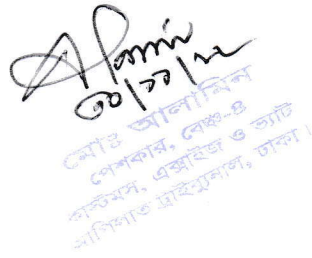 Alamin
৩০/১১/২২
মোঃ আলামিন
পেশকার, বেঞ্চ-৪
কাস্টমস, এক্সাইজ ও ভ্যাট
আপিলাত ট্রাইব্যুনাল, ঢাকা।